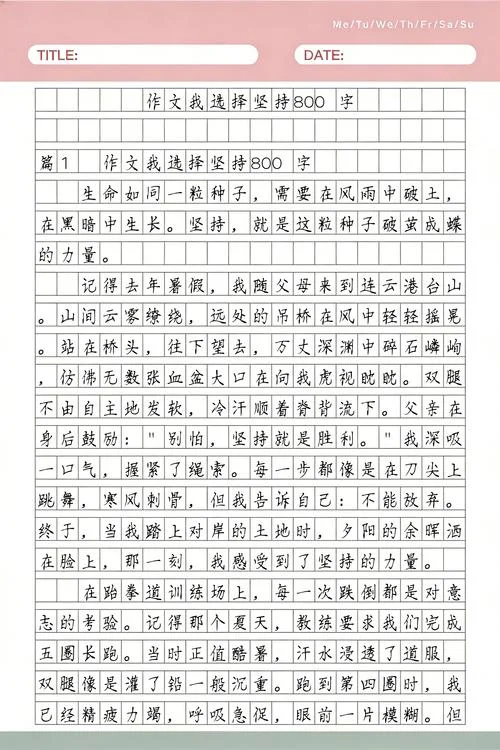 Me/Tu/We/Th/Fr/Sa/Su
TITLE:
DATE:
作文我选择坚持800 字
篇1 作文我选择坚持800 字
生命如同一粒种子，需要在风雨中破土，
在黑暗中生长。坚持，就是这粒种子破茧成蝶
的力量。
记得去年暑假，我随父母来到连云港台山
。山间云雾缭绕，远处的吊桥在风中轻轻摇晃
。站在桥头，往下望去，万丈深渊中碎石嶙峋
，仿佛无数张血盆大口在向我虎视眈眈。双腿
不由自主地发软，冷汗顺着脊背流下。父亲在
身后鼓励："别怕，坚持就是胜利。"我深吸
一口气，握紧了绳索。每一步都像是在刀尖上
跳舞，寒风刺骨，但我告诉自己：不能放弃。
终于，当我踏上对岸的土地时，夕阳的余晖洒
在脸上，那一刻，我感受到了坚持的力量。
在跆拳道训练场上，每一次跌倒都是对意
志的考验。记得那个夏天，教练要求我们完成
五圈长跑。当时正值酷暑，汗水浸透了道服，
双腿像是灌了铅一般沉重。跑到第四圈时，我
已经精疲力竭，呼吸急促，眼前一片模糊。但